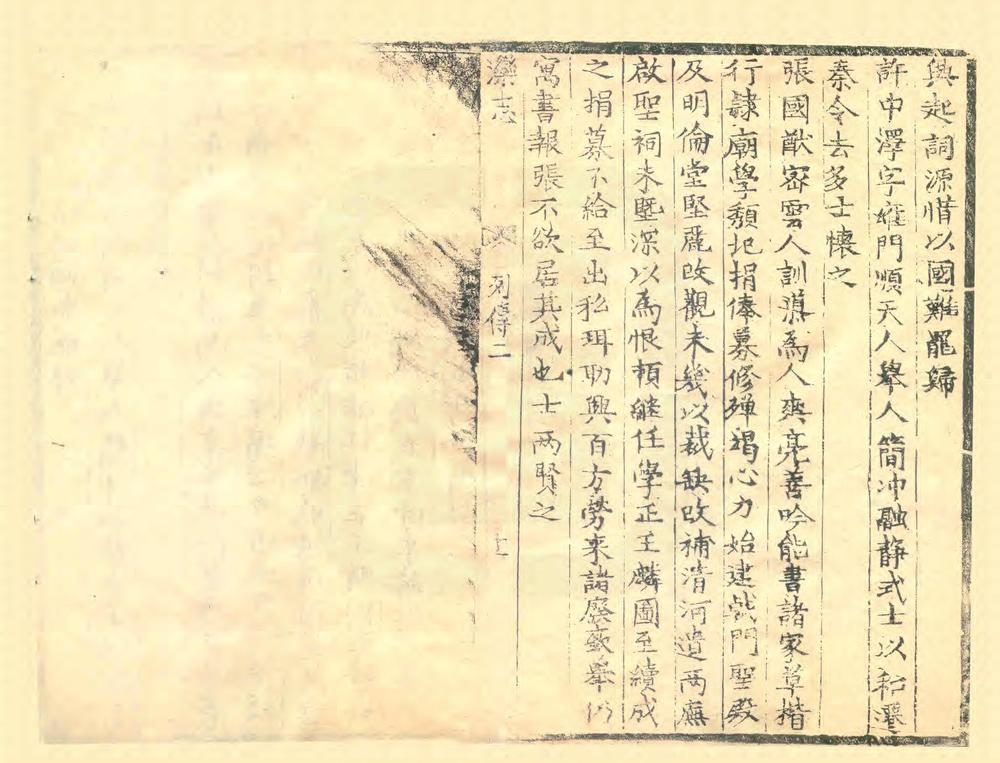 興起詞源惜以國難罷歸
許中澤字雍門順天人舉人簡冲融靜式士以和遷
秦令去多士懷之
張國猷密雲人訓導為人爽亮善吟能書諸家草楷
行隸廟學頹圮捐俸募修殫竭心力始建戟門聖殿
及明倫堂堅麗改觀未幾以裁缺改補清河遺兩廡
啟聖祠未塈深以為恨頼繼任學正王麟圖至續成
之捐募不給至出私珥助興百方勞来諸廢亟舉仍
寓書報張不欲居其成也士兩賢之
灤志
列傳二